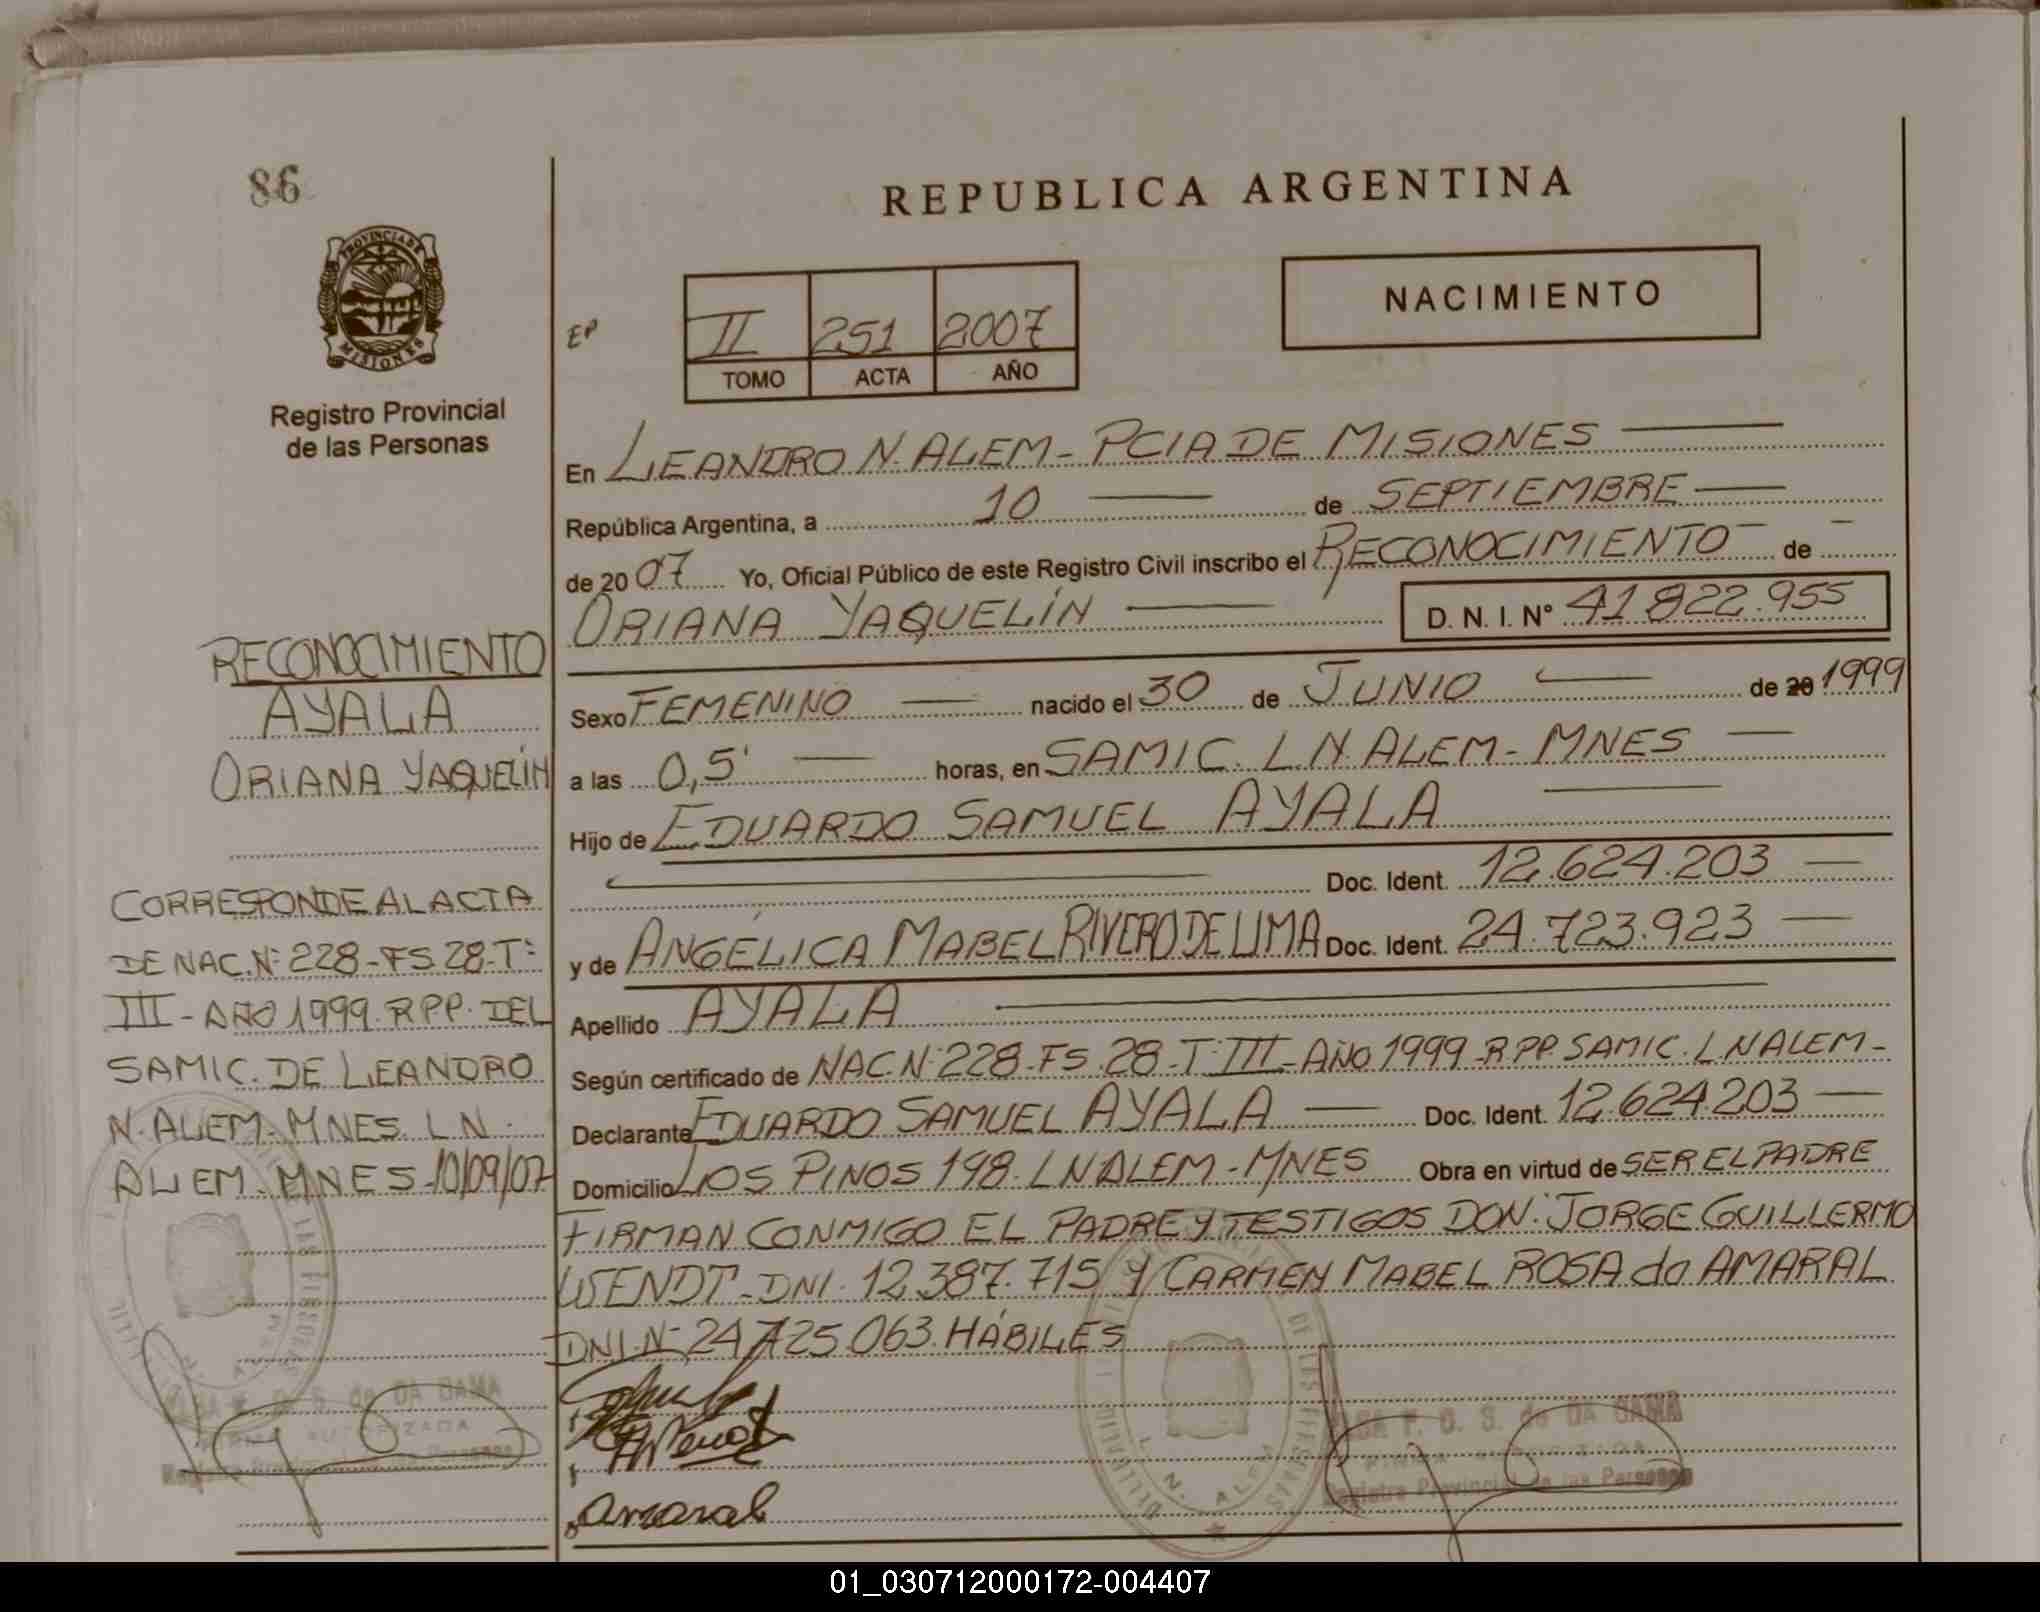 86
REPUBLICA ARGENTINA
PROVINCIA DE
MISIONES
Registro Provincial
de las Personas
EP
II 251 2007
TOMO ACTA AÑO
NACIMIENTO
En LEANDRO N. ALEM - PCIA DE MISIONES
República Argentina, a 10 de SEPTIEMBRE
de 20 07 Yo, Oficial Público de este Registro Civil inscribo el RECONOCIMIENTO de
ORIANA YAQUELÍN D. N. I. Nº 41 822.955
Sexo FEMENINO nacido el 30 de JUNIO de 20 1999
a las 0,5' horas, en SAMIC. L.N. ALEM - MNES
Hijo de EDUARDO SAMUEL AYALA
Doc. Ident. 12.624.203
y de ANGÉLICA MABEL RIVERO DE LIMA Doc. Ident. 24.723.923
Apellido AYALA
Según certificado de NAC. Nº 228 - FS. 28 - Tº III - AÑO 1999 - R.P.P. SAMIC. L N ALEM -
Declarante EDUARDO SAMUEL AYALA Doc. Ident. 12.624.203
Domicilio LOS PINOS 198. L N ALEM - MNES Obra en virtud de SER EL PADRE
FIRMAN CONMIGO EL PADRE Y TESTIGOS DON. JORGE GUILLERMO
WENDT - DNI. 12.387.715 Y CARMEN MABEL ROSA da AMARAL
DNI. Nº 24.725.063. HÁBILES
RECONOCIMIENTO
AYALA
ORIANA YAQUELÍN
CORRESPONDE AL ACTA
DE NAC. Nº 228 - FS. 28 - Tº
III - AÑO 1999. R.P.P. DEL
SAMIC. DE LEANDRO
N. ALEM - MNES. L.N.
ALEM - MNES - 10/09/07
F. O. S. de DA GAMA
FIRMA AUTORIZADA
Registro Provincial de las Personas
Amaral
F. O. S. de DA GAMA
FIRMA AUTORIZADA
Registro Provincial de las Personas
01_030712000172-004407